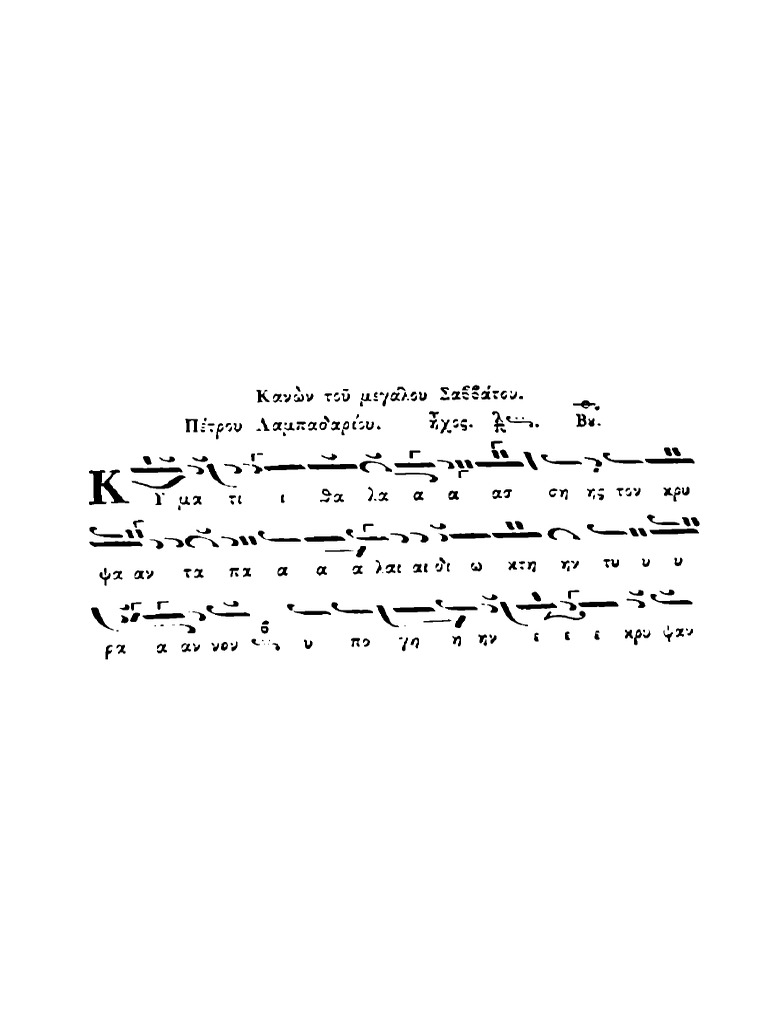 Κανὼν τοῦ μεγάλου Σαββάτου.
Πέτρου Λαμπαδαρίου. ἦχος. Βȣ.
Κ Υ μα τι ι θα λα α α ασ ση ης τον κρυ
ψα αν τα πα α α α λαι αι δι ω κτη ην τυ υ υ
ρα α αν νον υ πο γη η ην ε ε ε κρυ ψαν